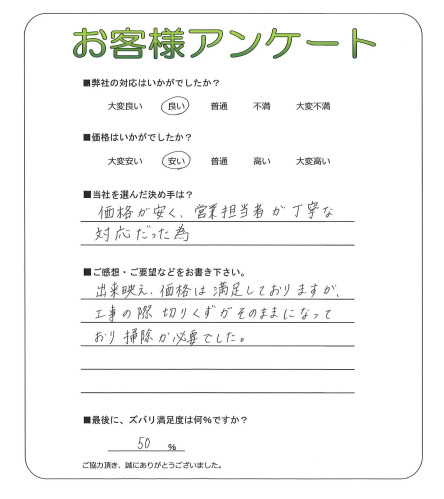 お客様アンケート
■弊社の対応はいかがでしたか？
大変良い 良い 普通 不満 大変不満
■価格はいかがでしたか？
大変安い 安い 普通 高い 大変高い
■当社を選んだ決め手は？
価格が安く、営業担当者が丁寧な
対応だった為
■ご感想・ご要望などをお書き下さい。
出来映え、価格は満足しておりますが、
工事の際切りくずがそのままになって
おり掃除が必要でした。
■最後に、ズバリ満足度は何%ですか？
50 %
ご協力頂き、誠にありがとうございました。